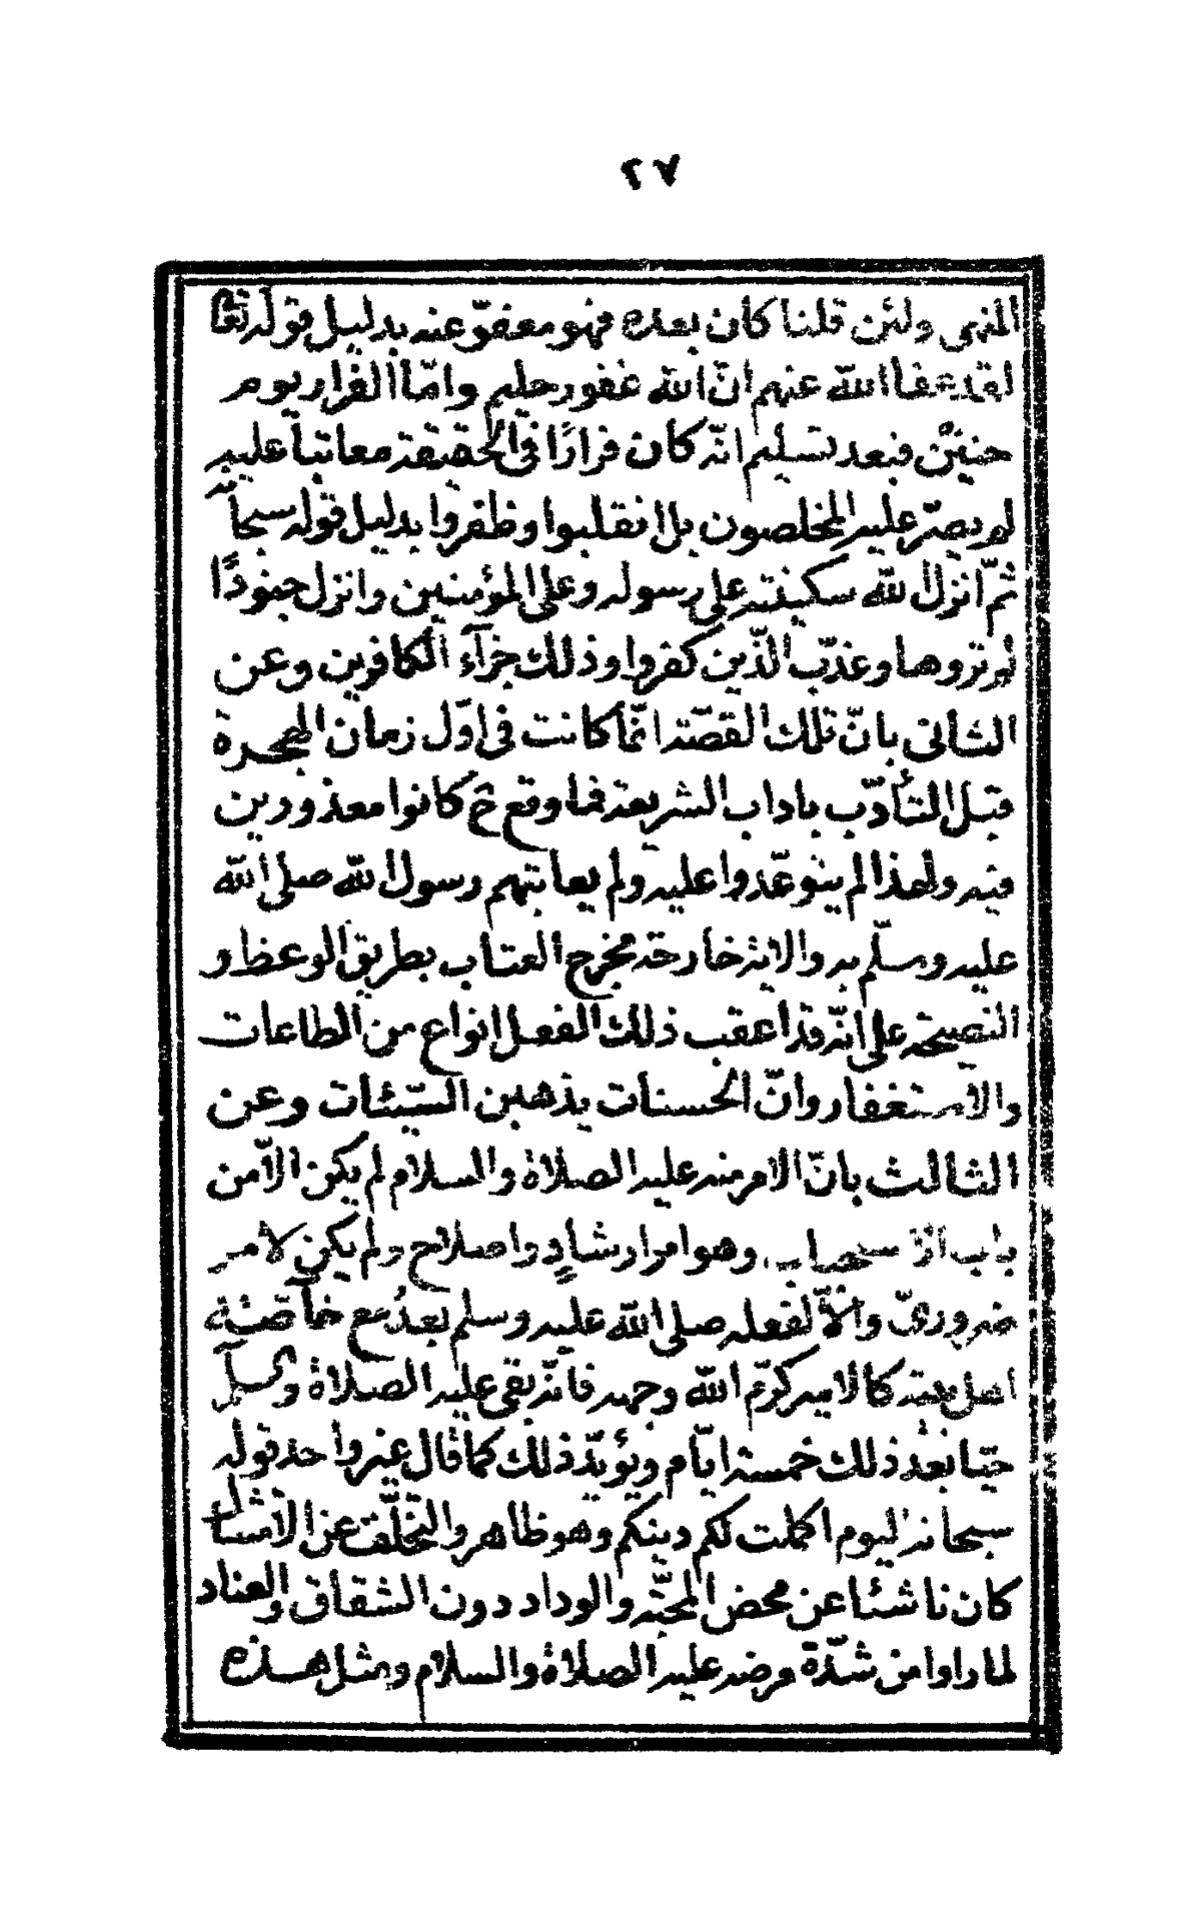 ٢٧
المنهى ولئن قلنا كان بعده فهو معفوّ عنه بدليل قوله تعا
لقد عفا الله عنهم انّ الله غفور حليم وامّا الفرار يوم
حنين فبعد تسليم انّه كان فرارًا فى الحقيقة معاتباً عليه
لم يصرّ عليه المخلصون بل انقلبوا وظفروا بدليل قوله سبحا
ثمّ انزل الله سكينته على رسوله وعلى المؤمنين وانزل جنودًا
لم تروها وعذّب الذّين كفروا وذلك جزآء الكافرين وعن
الثانى بانّ تلك القصّة انّما كانت فى اوّل زمان الهجرة
قبل التأدّب باداب الشريعة فما وقع ح كانوا معذورين
فيه ولهذا لم يتوعّدوا عليه ولم يعاتبهم رسول الله صلى الله
عليه وسلّم به والاية خارجة مخرج العتاب بطريق الوعظ و
النصيحة على انّه قد اعقب ذلك الفعل انواع من الطاعات
والاستغفار وانّ الحسنات يذهبن السّيئات وعن
الثالث بانّ الامر منه عليه الصلاة والسلام لم يكن الاّ من
باب وهو امر ارشادٍ واصلاح ولم يكن لامر
ضرورىّ والاّ لفعله صلى الله عليه وسلم بعدُ مع خآصّة
اهل بيته كالامير كرّم الله وجهه فانّه بقى عليه الصلاة و
حيّا بعد ذلك خمسة ايّام ويؤيّد ذلك كما قال غير واحد قوله
سبحانه اليوم اكملت لكم دينكم وهو ظاهر والتخلّف عن الامتثال
كان ناشئا عن محض المحبّة والوداد دون الشقاق والعناد
لما راوا من شدّة مرضه عليه الصلاة والسلام ومثل هذه